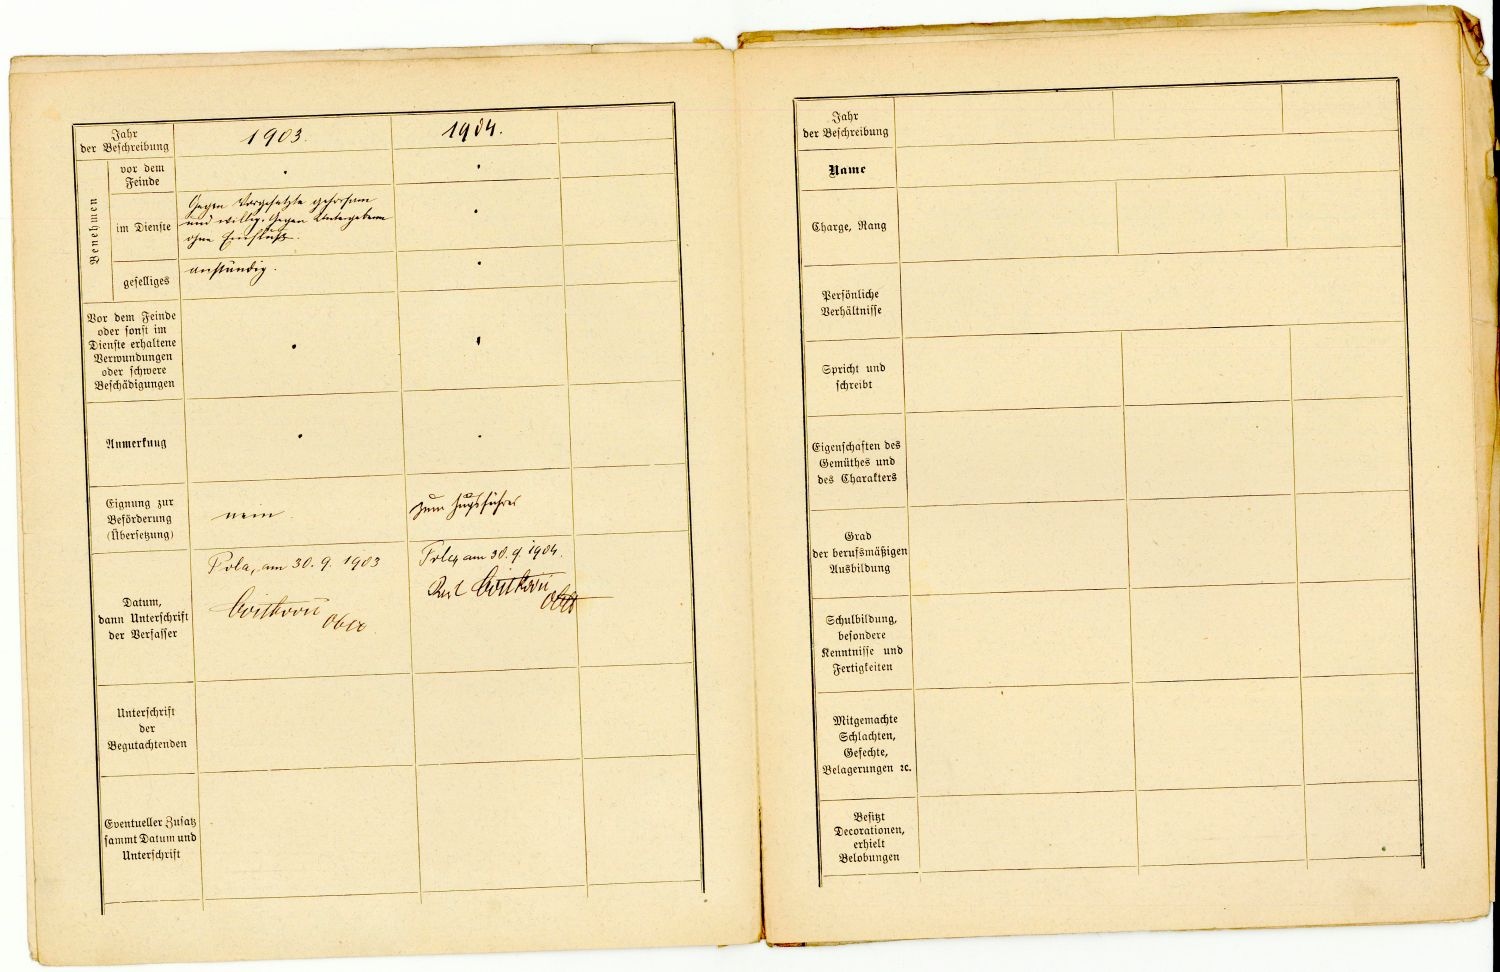 Jahr
der Beschreibung
1903.
1904.
Benehmen
vor dem
Feinde
im Dienste
Gegen Vorgesetzte gehorsam
und willig. Gegen Untergebene
ohne Einfluß.
geselliges
anständig.
Vor dem Feinde
oder sonst im
Dienste erhaltene
Verwundungen
oder schwere
Beschädigungen
Anmerkung
Eignung zur
Beförderung
(Übersetzung)
nein.
zum Zugsführer
Datum,
dann Unterschrift
der Verfasser
Pola, am 30. 9. 1903
Pola, am 30. 9. 1904.
Unterschrift
der
Begutachtenden
Eventueller Zusatz
sammt Datum und
Unterschrift
Jahr
der Beschreibung
Name
Charge, Rang
Persönliche
Verhältnisse
Spricht und
schreibt
Eigenschaften des
Gemüthes und
des Charakters
Grad
der berufsmäßigen
Ausbildung
Schulbildung,
besondere
Kenntnisse und
Fertigkeiten
Mitgemachte
Schlachten,
Gefechte,
Belagerungen ꝛc.
Besitzt
Decorationen,
erhielt
Belobungen